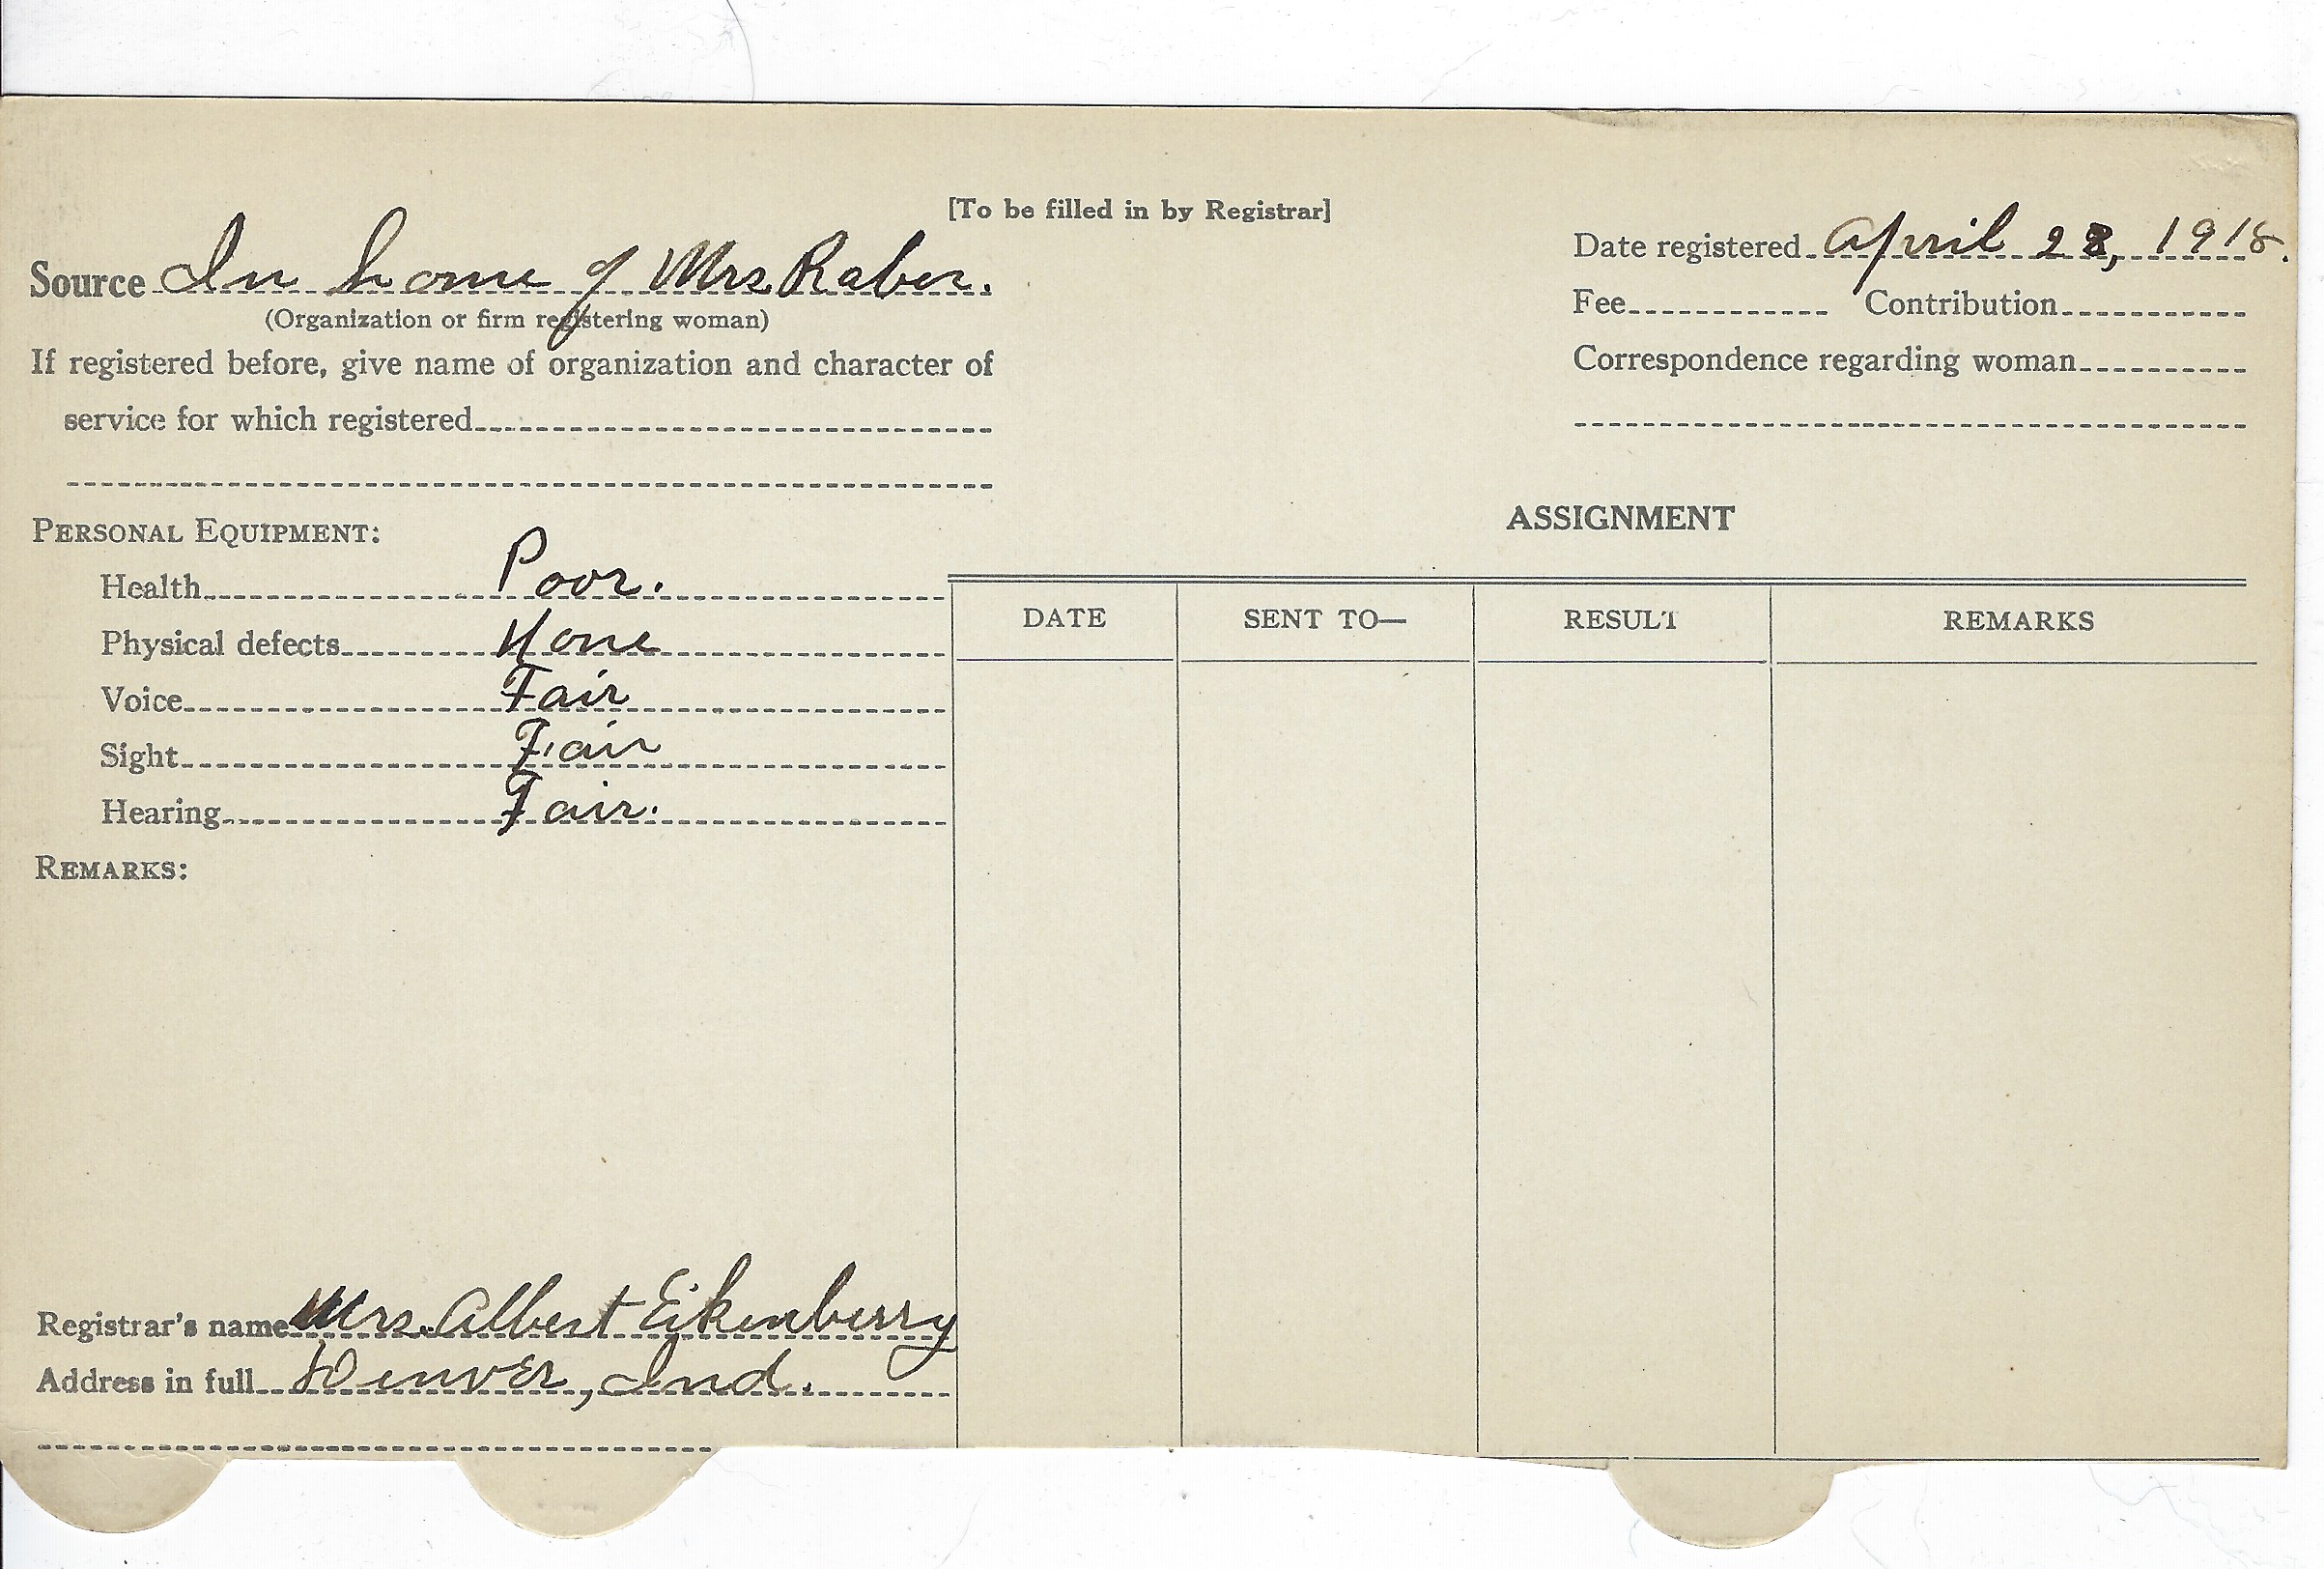 [To be filled in by Registrar]
Source In home of Mrs Raber.
(Organization or firm registering woman)
If registered before, give name of organization and character of
service for which registered
Date registered April 28, 1918.
Fee Contribution
Correspondence regarding woman
PERSONAL EQUIPMENT:
Health Poor.
Physical defects None
Voice Fair
Sight Fair
Hearing Fair.
REMARKS:
ASSIGNMENT
DATE SENT TO— RESULT REMARKS
Registrar's name Mrs. Albert Eikenberry
Address in full Denver, Ind.